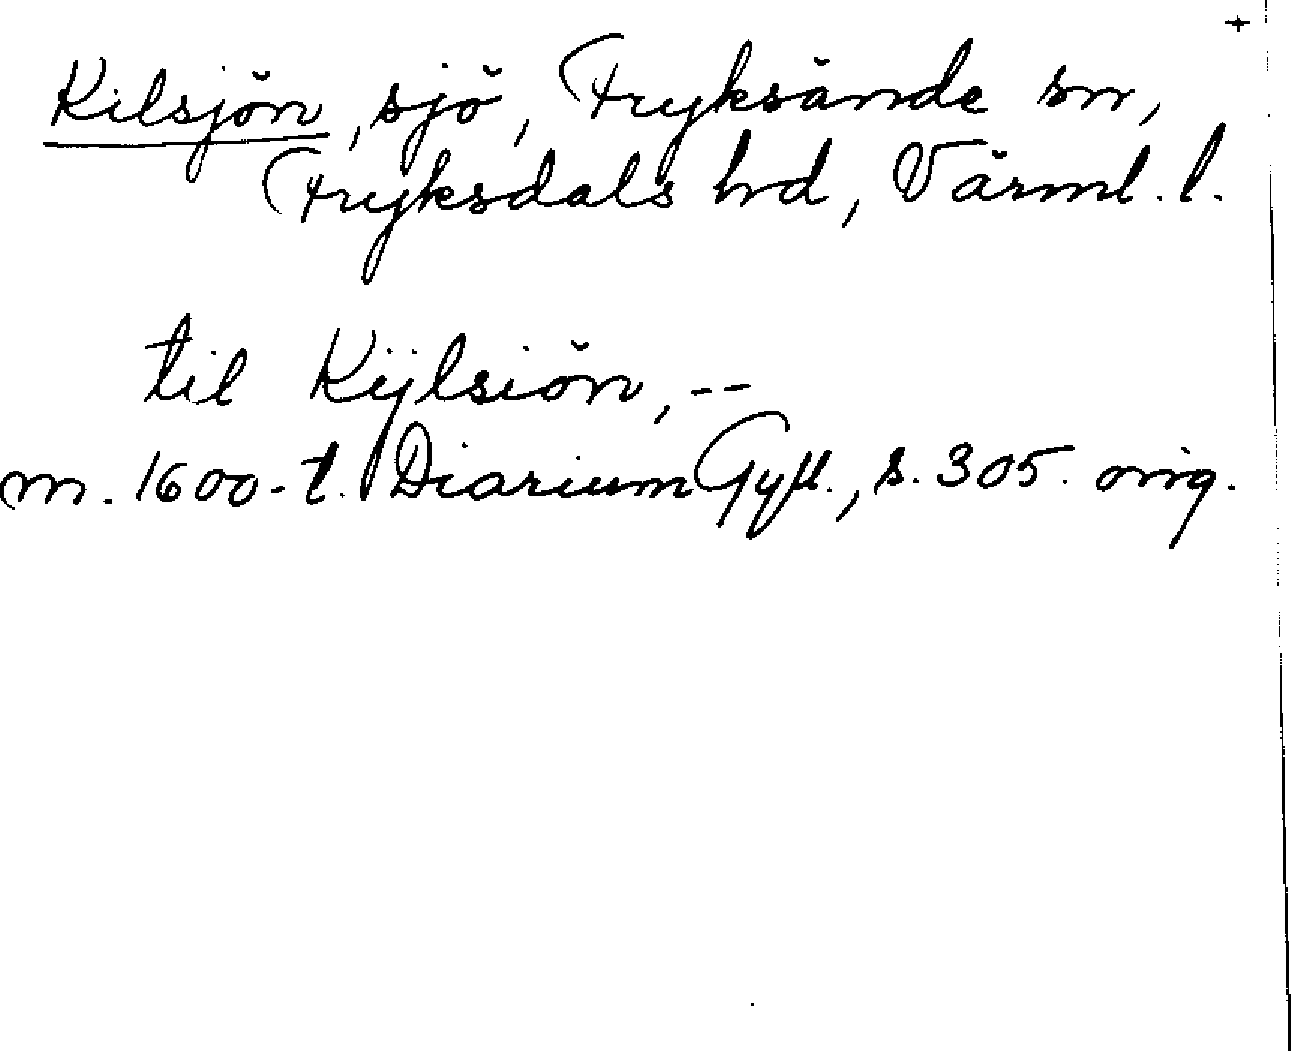 +
Kilsjön, sjö, Fryksände sn,
Fryksdals hd, Värml. l.
til Kijlsiön, --
m. 1600-t. Diarium Gyll., s. 305. orig.